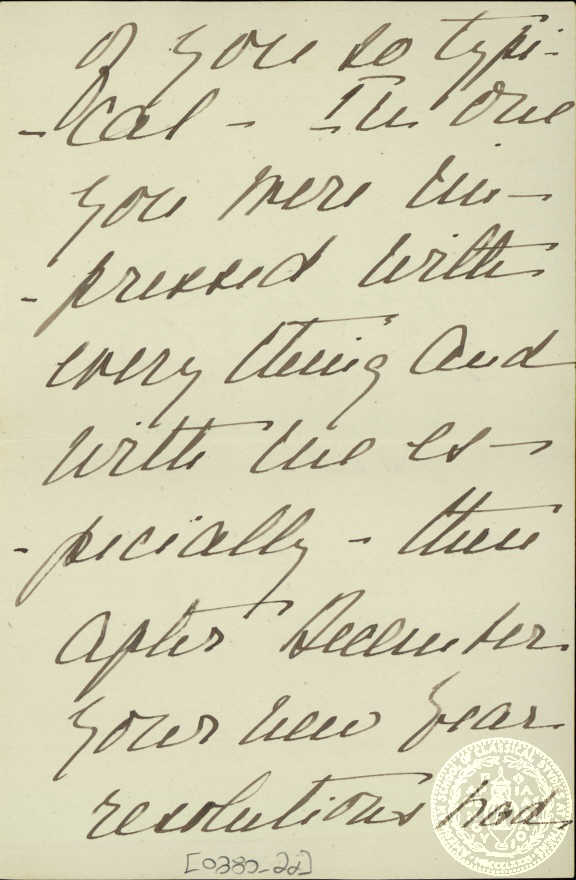 of you so typi-
-cal - In one
you were im-
-pressed with
every thing and
with me es-
-pecially - then
after December
your new year
resolutions had